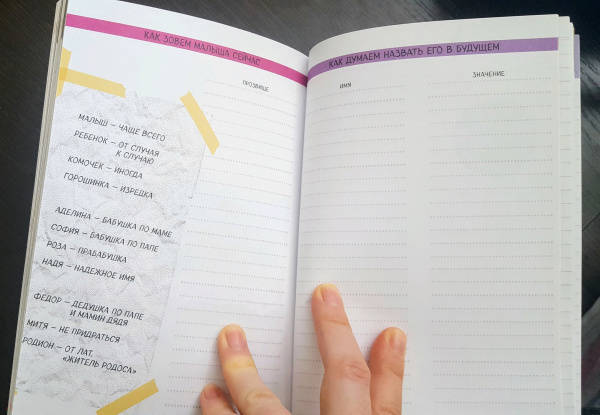 КАК ЗОВЕМ МАЛЫША СЕЙЧАС
ПРОЗВИЩЕ
МАЛЫШ – ЧАЩЕ ВСЕГО
РЕБЕНОК – ОТ СЛУЧАЯ
К СЛУЧАЮ
КОМОЧЕК – ИНОГДА
ГОРОШИНКА – ИЗРЕДКА
АДЕЛИНА – БАБУШКА ПО МАМЕ
СОФИЯ – БАБУШКА ПО ПАПЕ
РОЗА – ПРАБАБУШКА
НАДЯ – НАДЕЖНОЕ ИМЯ
ФЕДОР – ДЕДУШКА ПО ПАПЕ
И МАМИН ДЯДЯ
МИТЯ – НЕ ПРИДРАТЬСЯ
РОДИОН – ОТ ЛАТ.
«ЖИТЕЛЬ РОДОСА»
КАК ДУМАЕМ НАЗВАТЬ ЕГО В БУДУЩЕМ
ИМЯ
ЗНАЧЕНИЕ